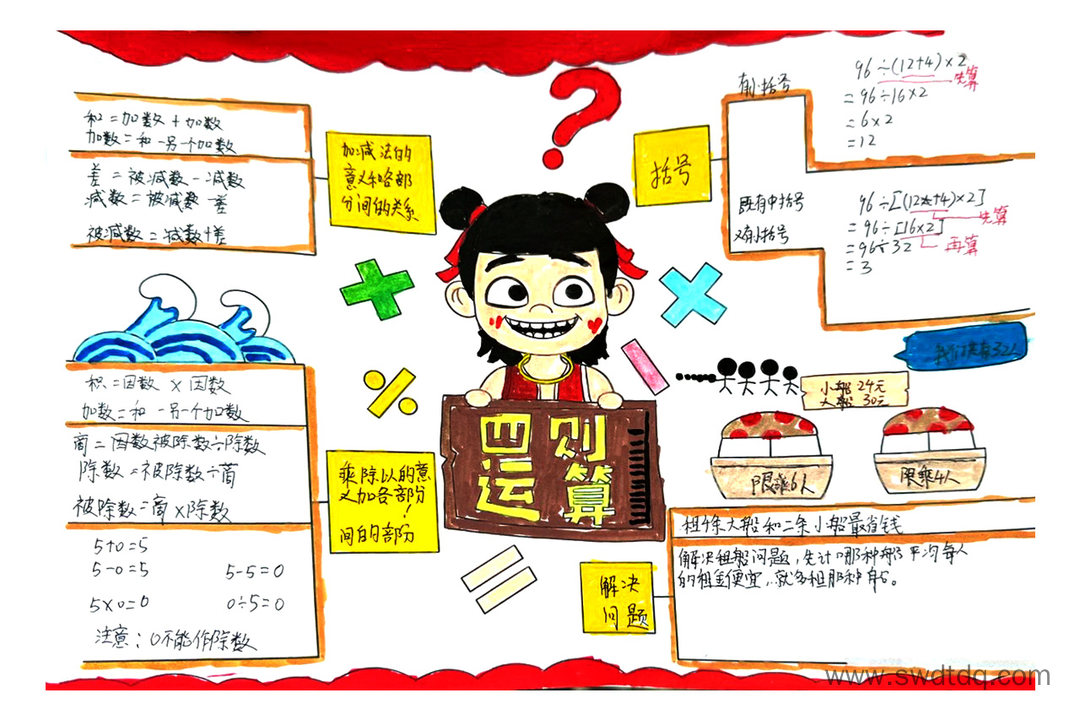 四则
运算
加减法的
意义和各部
分间的关系
和=加数+加数
加数=和-另一个加数
差=被减数-减数
减数=被减数-差
被减数=减数+差
乘除以的意
义加各部分
!
间的的部分
积=因数×因数
加数=和-另一个加数
商=因数被除数÷除数
除数=被除数÷商
被除数=商×除数
5+0=5
5-0=5 5-5=0
5×0=0 0÷5=0
注意:0不能作除数
括号
有小括号
96÷(12+4)×2
先算
=96÷16×2
=6×2
=12
既有中括号
又有小括号
96÷[(12+4)×2]
先算
=96÷[16×2]
再算
=96÷32
=3
我们共有32人
小船 24元
大船 30元
限乘6人
限乘4人
解决
问题
租4条大船和二条小船最省钱
解决租船问题,先计哪种船平均每人
的租金便宜,就多租那种船。
www.swdtdq.com